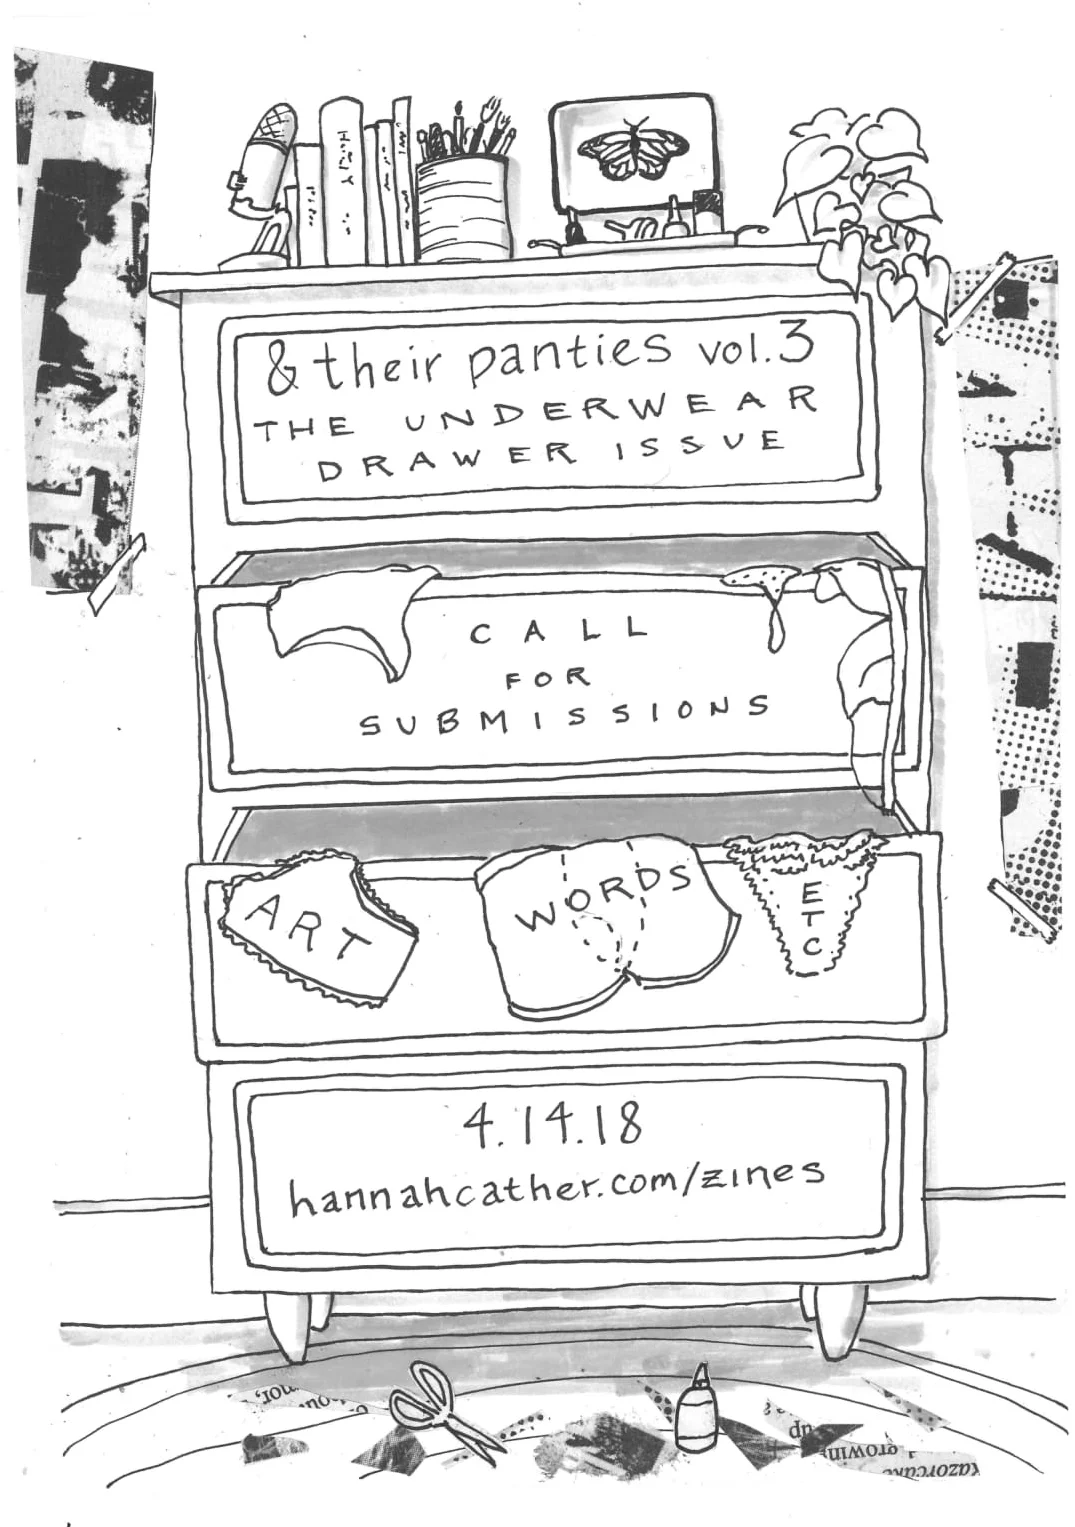 & their panties vol.3
THE UNDERWEAR
DRAWER ISSUE
CALL
FOR
SUBMISSIONS
ART
WORDS
ETC
4.14.18
hannahcather.com/zines
up
growin